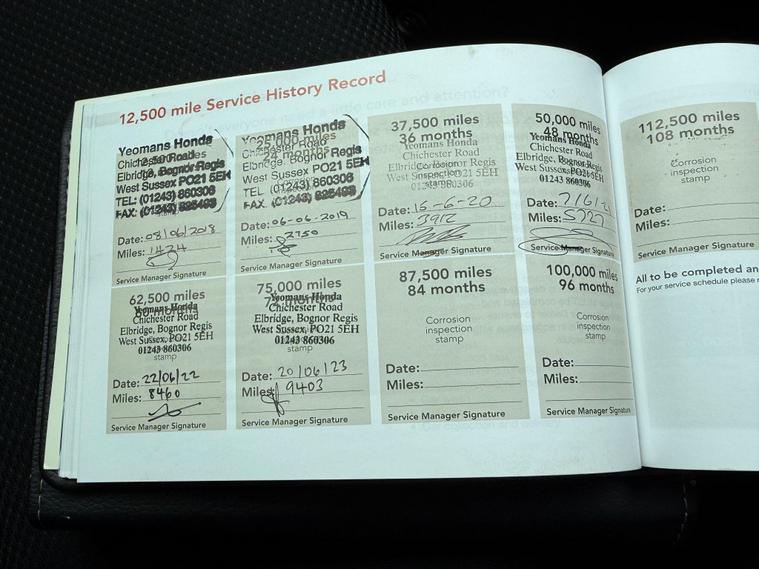 12,500 mile Service History Record
Yeomans Honda
Chichester Road
Elbridge, Bognor Regis
West Sussex PO21 5EH
TEL: (01243) 860306
FAX: (01243)
Date: 08/06/2018
Miles: 1424
Service Manager Signature
Yeomans Honda
25,000 miles
Chichester Road
24 months
Elbridge, Bognor Regis
West Sussex PO21 5EH
TEL (01243) 860306
FAX: (01243)
Date: 06-06-2019
Miles: 2750
Service Manager Signature
37,500 miles
36 months
Yeomans Honda
Chichester Road
Elbridge, Bognor Regis
West Sussex PO21 5EH
01243 860306
Date: 15-6-20
Miles: 3912
Service Manager Signature
50,000 miles
48 months
Yeomans Honda
Chichester Road
Elbridge, Bognor Regis
West Sussex, PO21 5EH
01243 860306
Date: 7/6/2
Miles: 5727
Service Manager Signature
112,500 miles
108 months
Corrosion
inspection
stamp
Date:
Miles:
Service Manager Signature
62,500 miles
Yeomans Honda
Chichester Road
Elbridge, Bognor Regis
West Sussex, PO21 5EH
01243 860306
stamp
Date: 22/06/22
Miles: 8460
Service Manager Signature
75,000 miles
Yeomans Honda
Chichester Road
Elbridge, Bognor Regis
West Sussex, PO21 5EH
01243 860306
stamp
Date: 20/06/23
Miles: 9403
Service Manager Signature
87,500 miles
84 months
Corrosion
inspection
stamp
Date:
Miles:
Service Manager Signature
100,000 miles
96 months
Corrosion
inspection
stamp
Date:
Miles:
Service Manager Signature
All to be completed an
For your service schedule please